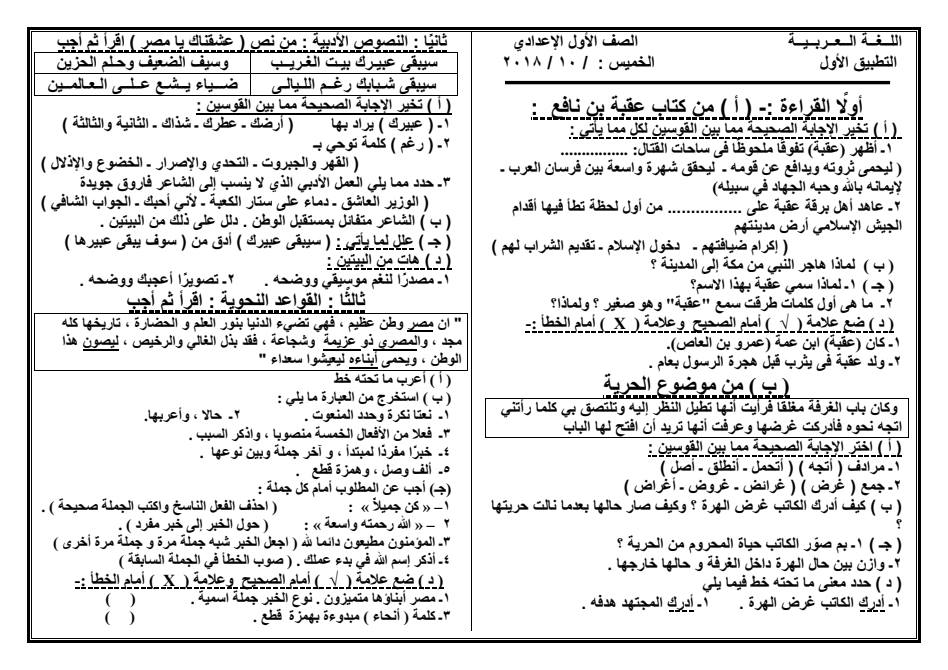 اللـغـة الـعـربـيـة الصف الأول الإعدادي
التطبيق الأول الخميس : / ١٠ / ٢٠١٨
أولًا القراءة :- ( أ ) من كتاب عقبة بن نافع :
( أ ) تخير الإجابة الصحيحة مما بين القوسين لكل مما يأتي :
١- أظهر (عقبة) تفوقًا ملحوظًا فى ساحات القتال: ................
( ليحمى ثروته ويدافع عن قومه ـ ليحقق شهرة واسعة بين فرسان العرب ـ
لإيمانه بالله وحبه الجهاد في سبيله)
٢- عاهد أهل برقة عقبة على ................ من أول لحظة تطأ فيها أقدام
الجيش الإسلامي أرض مدينتهم
( إكرام ضيافتهم ـ دخول الإسلام ـ تقديم الشراب لهم )
( ب ) لماذا هاجر النبي من مكة إلى المدينة ؟
( جـ ) ١- لماذا سمي عقبة بهذا الاسم؟
٢- ما هى أول كلمات طرقت سمع "عقبة" وهو صغير ؟ ولماذا؟
( د ) ضع علامة ( √ ) أمام الصحيح وعلامة ( X ) أمام الخطأ :-
١- كان (عقبة) ابن عمة (عمرو بن العاص).
٢- ولد عقبة فى يثرب قبل هجرة الرسول بعام .
( ب ) من موضوع الحرية
وكان باب الغرفة مغلقا فرأيت أنها تطيل النظر إليه وتلتصق بي كلما رأتني
اتجه نحوه فأدركت غرضها وعرفت أنها تريد أن افتح لها الباب
( أ ) اختر الإجابة الصحيحة مما بين القوسين :
١- مرادف ( أتجه ) ( أتحمل ـ أنطلق ـ أصل )
٢- جمع ( غرض ) ( غرائض ـ غروض ـ أغراض )
( ب ) كيف أدرك الكاتب غرض الهرة ؟ وكيف صار حالها بعدما نالت حريتها
؟
( جـ ) ١- بم صوّر الكاتب حياة المحروم من الحرية ؟
٢- وازن بين حال الهرة داخل الغرفة و حالها خارجها .
( د ) حدد معنى ما تحته خط فيما يلي
١- أدرك الكاتب غرض الهرة . ١- أدرك المجتهد هدفه .
ثانيًا : النصوص الأدبية : من نص ( عشقناك يا مصر ) اقرأ ثم أجب
سيبقى عبيرك بيت الغريـب وسيف الضعيف وحلم الحزين
سيبقى شبابك رغـم الليـالى ضـيـاء يـشـع عـلـى الـعـالمـين
( أ ) تخير الإجابة الصحيحة مما بين القوسين :
١- ( عبيرك ) يراد بها ( أرضك ـ عطرك ـ شذاك ـ الثانية والثالثة )
٢- ( رغم ) كلمة توحي بـ
( القهر والجبروت ـ التحدي والإصرار ـ الخضوع والإذلال )
٣- حدد مما يلي العمل الأدبي الذي لا ينسب إلى الشاعر فاروق جويدة
( الوزير العاشق ـ دماء على ستار الكعبة ـ لأني أحبك ـ الجواب الشافي )
( ب ) الشاعر متفائل بمستقبل الوطن . دلل على ذلك من البيتين .
( جـ ) علل لما يأتي : ( سيبقى عبيرك ) أدق من ( سوف يبقى عبيرها )
( د ) هات من البيتين :
١- مصدرًا لنغم موسيقي ووضحه . ٢- تصويرًا أعجبك ووضحه .
ثالثًا : القواعد النحوية : اقرأ ثم أجب
" ان مصر وطن عظيم ، فهي تضيء الدنيا بنور العلم و الحضارة ، تاريخها كله
مجد ، والمصري ذو عزيمة وشجاعة ، فقد بذل الغالي والرخيص ، ليصون هذا
الوطن ، ويحمى أبناءه ليعيشوا سعداء "
( أ ) أعرب ما تحته خط
( ب ) استخرج من العبارة ما يلي :
١- نعتا نكرة وحدد المنعوت . ٢- حالا ، وأعربها.
٣- فعلا من الأفعال الخمسة منصوبا ، واذكر السبب .
٤- خبرًا مفردًا لمبتدأ ، و آخر جملة وبين نوعها .
٥- ألف وصل ، وهمزة قطع .
(جـ) أجب عن المطلوب أمام كل جملة :
١– « كن جميلاً » : ( احذف الفعل الناسخ واكتب الجملة صحيحة ) .
٢ – « الله رحمته واسعة » : ( حول الخبر إلى خبر مفرد ) .
٣- المؤمنون مطيعون دائما لله ( اجعل الخبر شبه جملة مرة و جملة مرة أخرى )
٤- أذكر إسم الله في بدء عملك . ( صوب الخطأ في الجملة السابقة )
( د ) ضع علامة ( √ ) أمام الصحيح وعلامة ( X ) أمام الخطأ :-
١- مصر أبناؤها متميزون . نوع الخبر جملة اسمية . ( )
٣- كلمة ( أنحاء ) مبدوءة بهمزة قطع . ( )